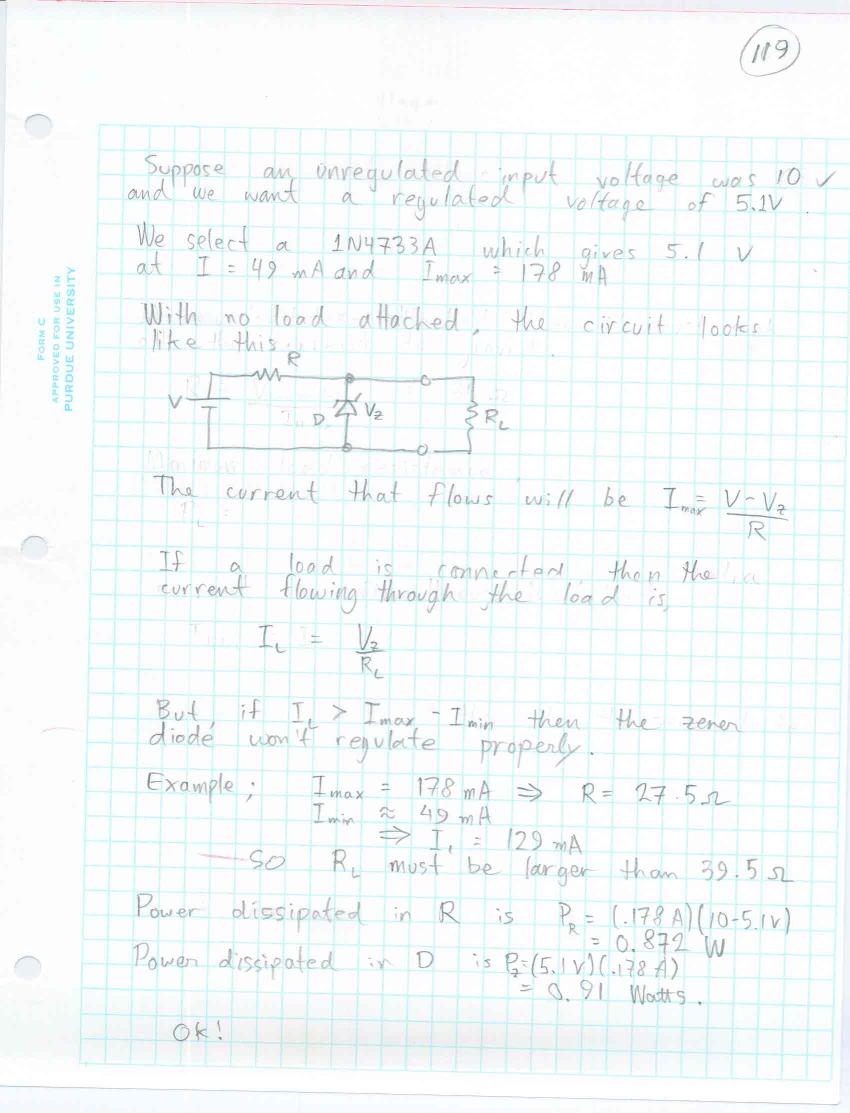 119
FORM C
APPROVED FOR USE IN
PURDUE UNIVERSITY
Suppose an unregulated input voltage was 10 V
and we want a regulated voltage of 5.1V
We select a 1N4733A which gives 5.1 V
at I = 49 mA and Imax = 178 mA
With no load attached, the circuit looks
like this
R
V
D
Vz
RL
The current that flows will be Imax = (V-Vz)/R
If a load is connected then the
current flowing through the load is,
IL = Vz/RL
But, if IL > Imax - Imin then the zener
diode won't regulate properly.
Example; Imax = 178 mA ⇒ R = 27.5Ω
Imin ≈ 49 mA
⇒ IL = 129 mA
SO RL must be larger than 39.5 Ω
Power dissipated in R is PR = (.178 A)(10-5.1V)
= 0.872 W
Power dissipated in D is Pz=(5.1V)(.178 A)
= 0.91 Watts.
Ok!